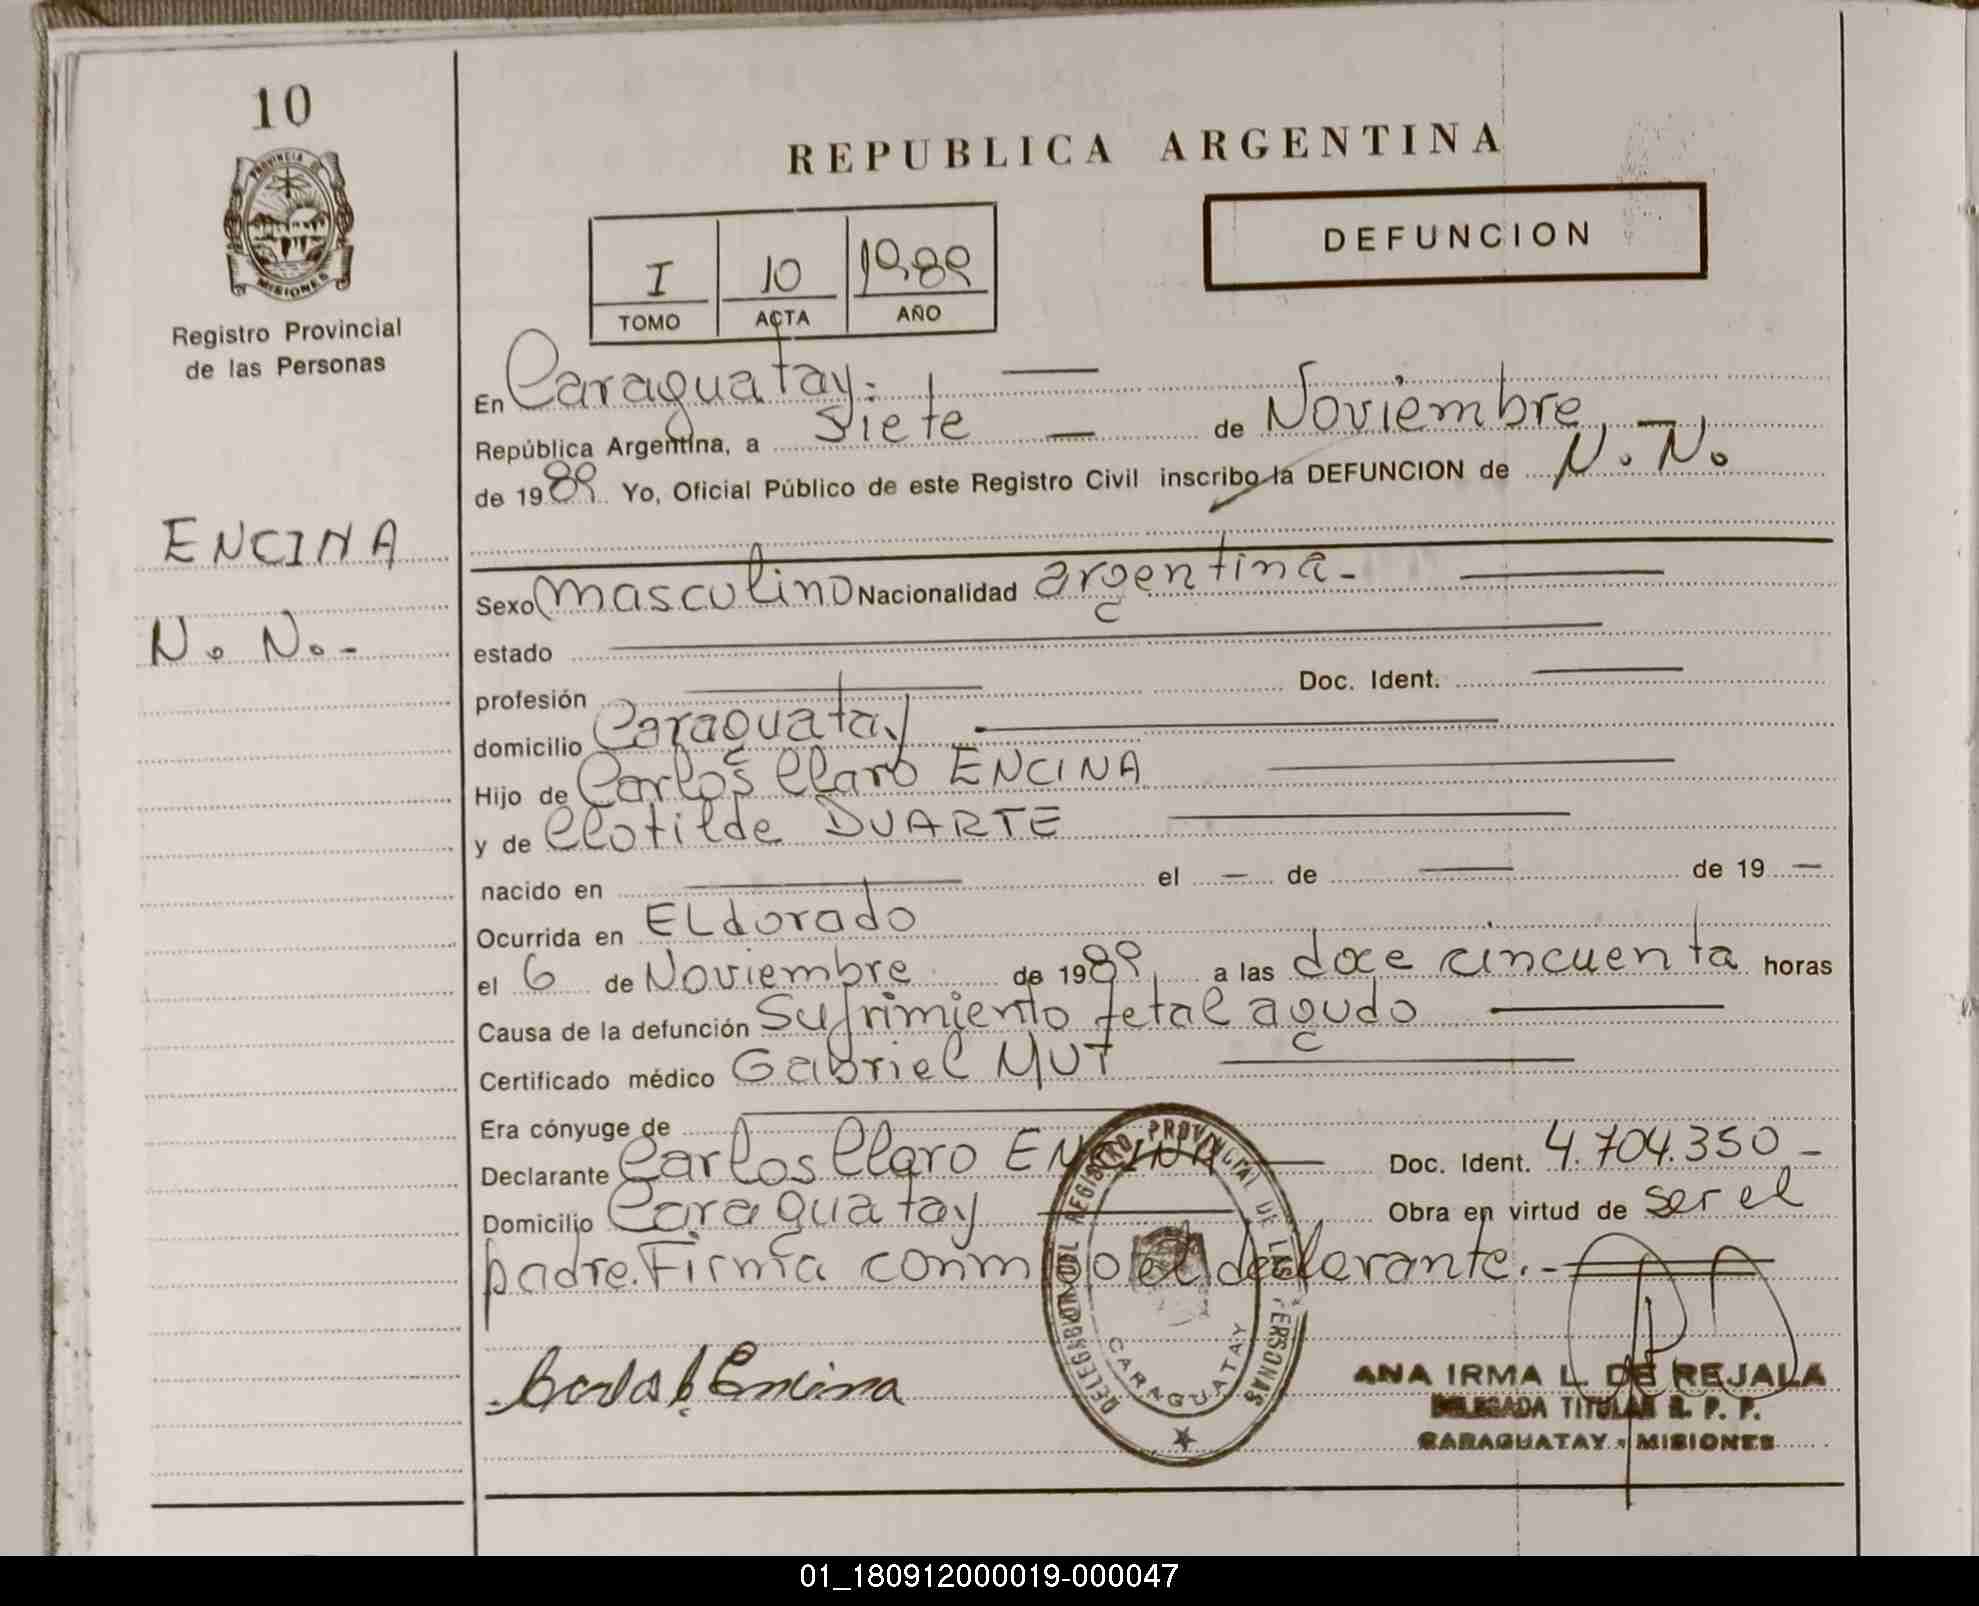 10
PROVINCIA DE
MISIONES
Registro Provincial
de las Personas
ENCINA
N. N.-
REPUBLICA ARGENTINA
DEFUNCION
I 10 1989
TOMO ACTA AÑO
En Caraguatay.-
República Argentina, a Siete — de Noviembre, —
de 1989 Yo, Oficial Público de este Registro Civil inscribo la DEFUNCION de N. N.
Sexo masculino Nacionalidad argentina- —
estado —
profesión — Doc. Ident. —
domicilio Caraguatay —
Hijo de Carlos Claro ENCINA —
y de Clotilde DUARTE —
nacido en — el — de — de 19 —
Ocurrida en ELdorado
el 6 de Noviembre de 1989, a las doce cincuenta horas
Causa de la defunción Sufrimiento fetal agudo —
Certificado médico Gabriel MUT —
Era cónyuge de —
Declarante Carlos Claro ENCINA — Doc. Ident. 4.704.350 -
Domicilio Caraguatay — Obra en virtud de ser el
padre. Firma conmigo el declarante.-
Carlos C Encina
REGISTRO PROVINCIAL DE LAS PERSONAS
CARAGUATAY
ANA IRMA L. DE REJALA
DELEGADA TITULAR R. P. P.
CARAGUATAY - MISIONES
01_180912000019-000047